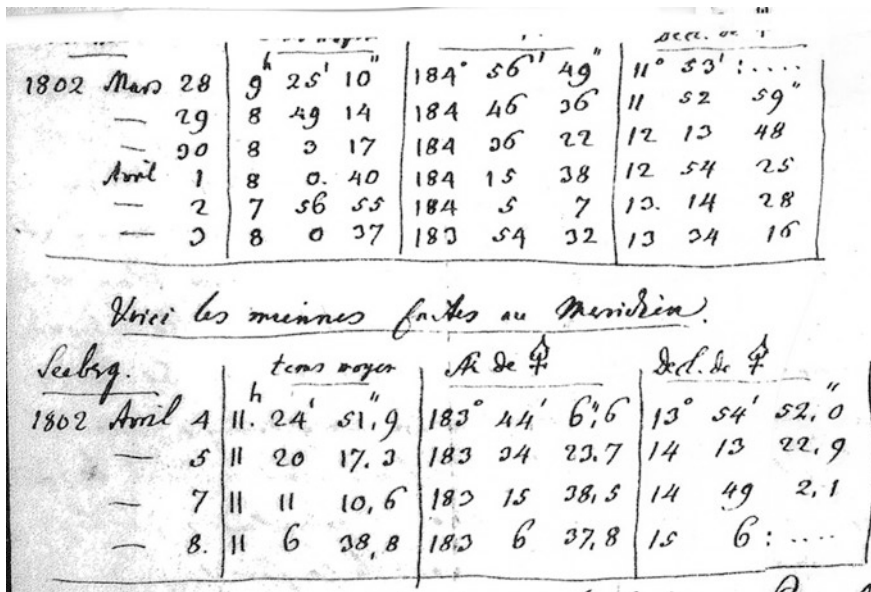 1802 Mars 28 9h 25' 10" 184° 56' 49" 11° 53' : ....
— 29 8 49 14 184 46 36 11 52 59"
— 30 8 3 17 184 36 22 12 13 48
Avril 1 8 0. 40 184 15 38 12 54 25
— 2 7 56 55 184 5 7 13. 14 28
— 3 8 0 37 183 54 32 13 34 16
Voici les miennes faites au Meridien.
Seeberg. tems moyen Æ de Decl. de
1802 Avril 4 11.h 24' 51",9 183° 44' 6",6 13° 54' 52,"0
— 5 11 20 17.3 183 34 23.7 14 13 22,9
— 7 11 11 10,6 183 15 38,5 14 49 2,1
— 8. 11 6 38,8 183 6 37,8 15 6: ....